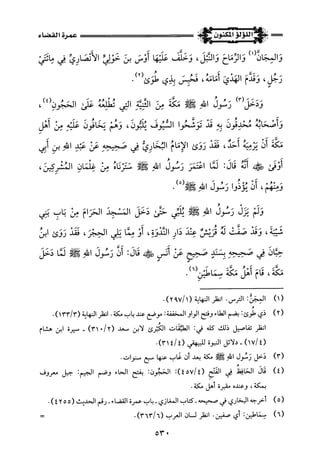 اللؤلؤ المكنون
عمرة القضاء
وَالمِجَانَّ(١) وَالرِّمَاحَ وَالنَّبْلَ، وَخَلَّفَ عَلَيْهَا أَوْسَ بنَ خَوْلِيٍّ الأَنْصَارِيَّ فِي مِائَتَيْ
رَجُلٍ، وَقَدَّمَ الهَدْيَ أَمَامَهُ، فَحُبِسَ بِذِي طُوَى(٢).
وَدَخَلَ(٣) رَسُولُ اللهِ ﷺ مَكَّةَ مِنَ الثَّنِيَّةِ التِي تُطْلِعُهُ عَلَى الحَجُونِ(٤)،
وَأَصْحَابُهُ مُحْدِقُونَ بِهِ قَدْ تَوَشَّحُوا السُّيُوفَ يُلَبُّونَ، وَهُمْ يَخَافُونَ عَلَيْهِ مِنْ أَهْلِ
مَكَّةَ أَنْ يَرْمِيَهُ أَحَدٌ، فَقَدْ رَوَى الإِمَامُ البُخَارِيُّ فِي صَحِيحِهِ عَنْ عَبْدِ اللهِ بنِ أَبِي
أَوْفَى ﷺ أَنَّهُ قَالَ: لَمَّا اعْتَمَرَ رَسُولُ اللهِ ﷺ سَتَرْنَاهُ مِنْ غِلْمَانِ المُشْرِكِينَ،
وَمِنْهُمْ، أَنْ يُؤْذُوا رَسُولَ اللهِ ﷺ(٥).
وَلَمْ يَزَلْ رَسُولُ اللهِ ﷺ يُلَبِّي حَتَّى دَخَلَ المَسْجِدَ الحَرَامَ مِنْ بَابِ بَنِي
شَيْبَةَ، وَقَدْ صَفَّتْ لَهُ قُرَيْشٌ عِنْدَ دَارِ النَّدْوَةِ، أَوْ مِمَّا يَلِي الحِجْرَ، فَقَدْ رَوَى ابنُ
حِبَّانَ فِي صَحِيحِهِ بِسَنَدٍ صَحِيحٍ عَنْ أَنَسٍ ﷺ قَالَ: أَنَّ رَسُولَ اللهِ ﷺ لَمَّا دَخَلَ
مَكَّةَ، قَامَ أَهْلُ مَكَّةَ سِمَاطَيْنِ(٦).
(١) المِجَنُّ: الترس. انظر النهاية (٢٩٧/١).
(٢) ذي طُوَى: بضم الطاء وفتح الواو المخففة: موضع عند باب مكة. انظر النهاية (١٣٣/٣).
انظر تفاصيل ذلك كله في: الطَّبَقَات الكُبْرَى لابن سعد (٣١٠/٢) - سيرة ابن هشام
(١٧/٤) - دلائل النبوة للبيهقي (٣١٤/٤).
(٣) دخل رَسُول اللهِ ﷺ مكة بعد أن غاب عنها سبع سنوات.
(٤) قَالَ الحَافِظُ فِي الفَتْحِ (٤٥٧/٤): الحَجُون: بفتح الحاء وضم الجيم: جبل معروف
بمكة، وعنده مقبرة أهل مكة.
(٥) أخرجه البخاري في صحيحه - كتاب المغازي - باب عمرة القضاء - رقم الحديث (٤٢٥٥).
(٦) سِمَاطين: أي صفين. انظر لسان العرب (٣٦٣/٦). =
٥٣٠